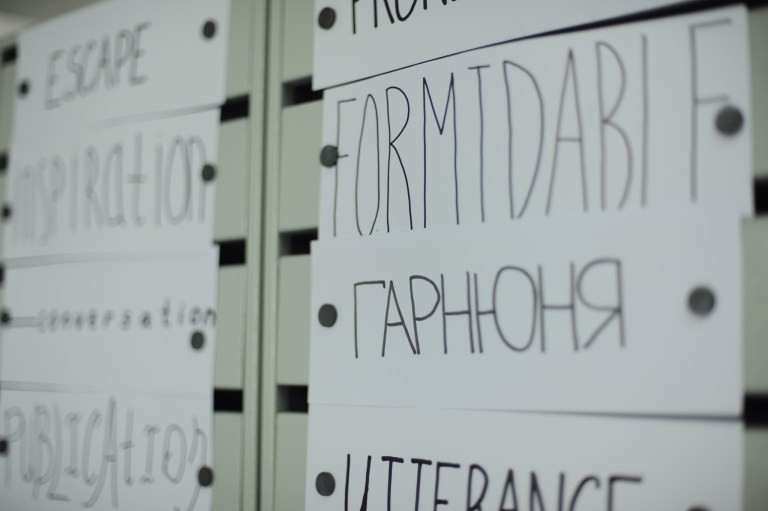 ESCAPE
INSPIRATION
conversation
PUBLICATION
FORMIDABLE
ГАРНЮНЯ
UTTERANCE